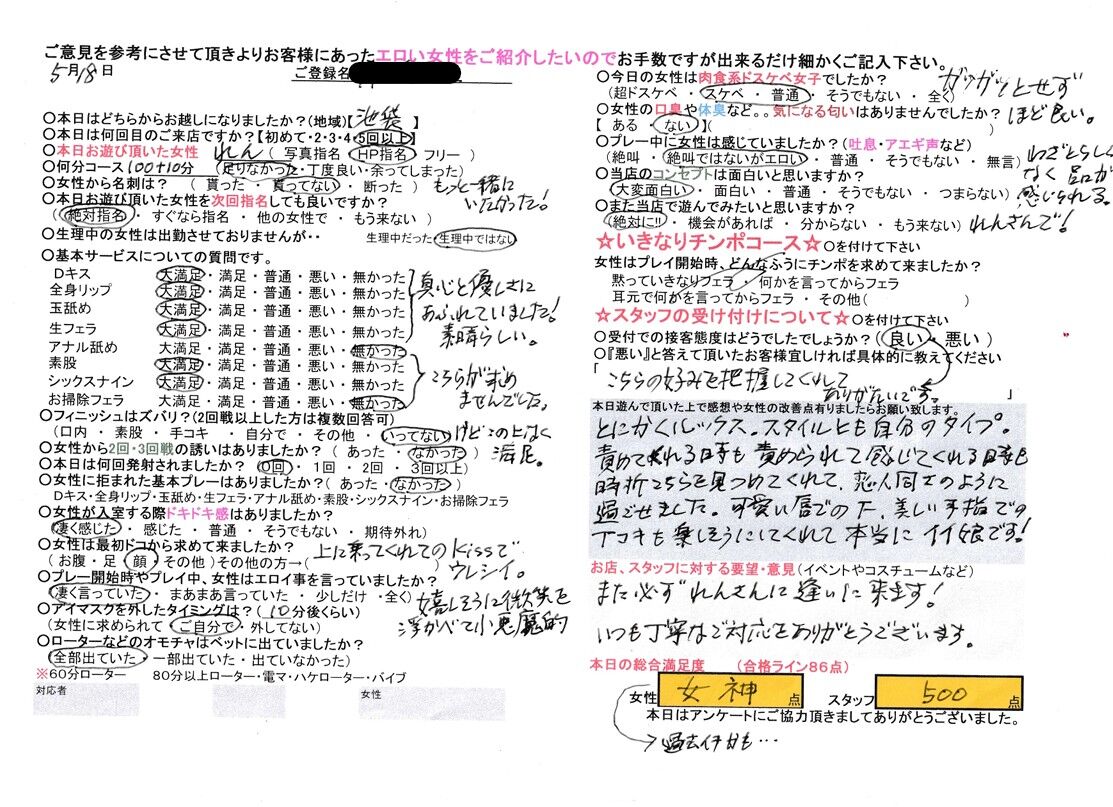 ご意見を参考にさせて頂きよりお客様にあったエロい女性をご紹介したいのでお手数ですが出来るだけ細かくご記入下さい。
5月18日
ご登録名
〇本日はどちらからお越しになりましたか？(地域)【池袋】
〇本日は何回目のご来店ですか？【初めて・2・3・4・5回以上】
〇本日お遊び頂いた女性 れん （ 写真指名 ・ HP指名 ・ フリー ）
〇何分コース 100+10分 （ 足りなかった ・丁度良い・余ってしまった）
〇女性から名刺は？ （ 貰った ・ 貰ってない ・ 断った ） もっと一緒に
いたかった！
〇本日お遊び頂いた女性を次回指名しても良いですか？
（ 絶対指名 ・ すぐなら指名 ・ 他の女性で ・ もう来ない ）
〇生理中の女性は出勤させておりませんが・・ 生理中だった ・ 生理中ではない
〇基本サービスについての質問です。
Dキス 大満足 ・満足・普通・悪い・無かった
全身リップ 大満足 ・満足・普通・悪い・無かった
玉舐め 大満足 ・満足・普通・悪い・無かった
生フェラ 大満足 ・満足・普通・悪い・無かった
真心と優しさに
あふれていました！
素晴らしい。
アナル舐め 大満足 ・満足・普通・悪い・無かった
素股 大満足 ・満足・普通・悪い・無かった
シックスナイン 大満足 ・満足・普通・悪い・無かった
お掃除フェラ 大満足 ・満足・普通・悪い・無かった
こちらが求め
ませんでした。
〇フィニッシュはズバリ？(2回戦以上した方は複数回答可)
（口内 ・ 素股 ・ 手コキ ・ 自分で ・ その他 ・ いってない ） けどこの上なく
満足。
〇女性から2回・3回戦の誘いはありましたか？ （ あった ・ なかった ）
〇本日は何回発射されましたか？ （ 0回 ・ 1回 ・ 2回 ・ 3回以上）
〇女性に拒まれた基本プレーはありましたか？（ あった ・ なかった ）
Dキス・全身リップ・玉舐め・生フェラ・アナル舐め・素股・シックスナイン・お掃除フェラ
〇女性が入室する際ドキドキ感はありましたか？
（凄く感じた ・ 感じた ・ 普通 ・ そうでもない ・ 期待外れ）
〇女性は最初ドコから求めて来ましたか？
上に乗ってくれてのKissで
（お腹 ・ 足 ・ 顔 ・ その他 ）その他の方→（ ） ウレシイ。
〇プレー開始時やプレイ中、女性はエロイ事を言っていましたか？
（凄く言っていた ・ まあまあ言っていた ・ 少しだけ ・全く）
〇アイマスクを外したタイミングは？（ 10 分後くらい）
（女性に求められて ・ ご自分で ・ 外してない）
嬉しそうに微笑を
浮かべて小悪魔的
〇ローターなどのオモチャはベットに出ていましたか？
（全部出ていた ・ 一部出ていた ・ 出ていなかった）
※60分ローター 80分以上ローター・電マ・ハケローター・バイブ
対応者
女性
〇今日の女性は肉食系ドスケベ女子でしたか？
（超ドスケベ ・ スケベ ・ 普通 ・ そうでもない ・ 全く）
ガツガツとせず
ほど良い。
〇女性の口臭や体臭など。。気になる匂いはありませんでしたか？
【 ある ・ ない 】（ ）
〇プレー中に女性は感じていましたか？（吐息・アエギ声など）
（絶叫 ・ 絶叫ではないがエロい ・ 普通 ・ そうでもない ・ 無言）
わざとらしく
なく品が
感じられる。
〇当店のコンセプトは面白いと思いますか？
（大変面白い ・ 面白い ・ 普通 ・ そうでもない ・ つまらない）
〇また当店で遊んでみたいと思いますか？
（絶対に!! ・ 機会があれば ・ 分からない ・ もう来ない） れんさんで！
☆いきなりチンポコース☆〇を付けて下さい
女性はプレイ開始時、どんなふうにチンポを求めて来ましたか？
黙っていきなりフェラ ・ 何かを言ってからフェラ
耳元で何かを言ってからフェラ ・ その他（ ）
☆スタッフの受け付けについて☆〇を付けて下さい
〇受付での接客態度はどうでしたでしょうか？（ 良い ・ 悪い ）
〇『悪い』と答えて頂いたお客様宜しければ具体的に教えてください
「 こちらの好みを把握してくれて
ありがたいです。 」
本日遊んで頂いた上で感想や女性の改善点有りましたらお願い致します。
とにかくルックス。スタイルとも自分のタイプ。
責めてくれる時も責められて感じてくれる時も
時折こちらを見つめてくれて、恋人同士のように
過ごせました。可愛い唇でのF、美しい手指での
Tコキも楽しそうにしてくれて本当にイイ娘です！
お店、スタッフに対する要望・意見（イベントやコスチュームなど）
また必ずれんさんに逢いに来ます！
いつも丁寧なご対応をありがとうございます。
本日の総合満足度 （合格ライン86点）
女性 女神 点 スタッフ 500 点
本日はアンケートにご協力頂きましてありがとうございました。
過去イチかも…